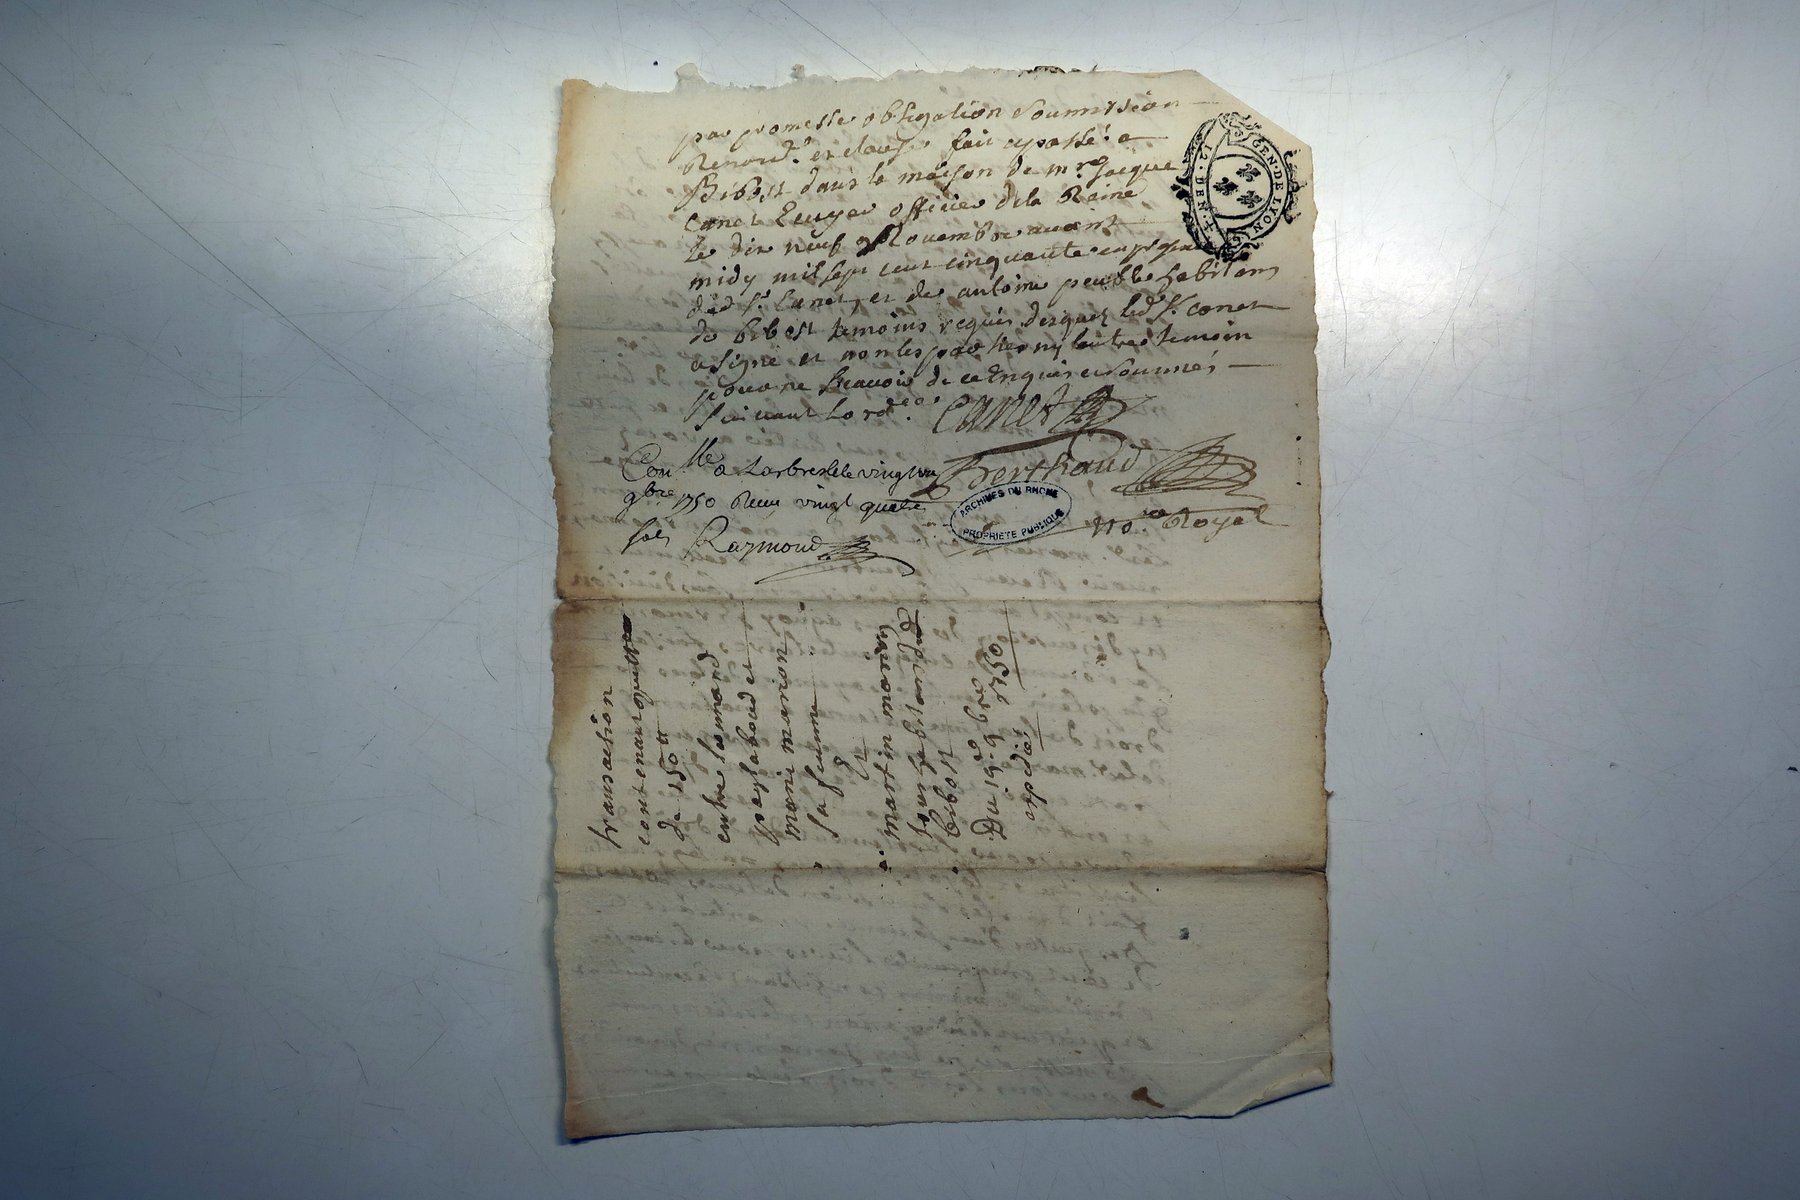 par promesse obligation soumission
Renon.^s et clause fait et passé a
Bibost dans la maison de m.^re Jacque
Canet Ecuyer officier de la Reine
Le dix neuf novembre avant
midy mil sept cent cinquante en presence
dud s.^r Canet, et de antoine habitans
de Bibost temoins requis desquels led s.^r Canet
a signé et non les parties ny lautre temoin
pour ne scavoir de ce Enquis et sommés
suivant lord.^ce
Canet
Con^lle a Larbresle le vingt un
9^bre 1750 Receu vingt quatre
sols Raymond
Berthaud
no.^re Royal
ARCHIVES DU RHONE
PROPRIETE PUBLIQUE
GEN. DE LYON
transaction
contenant quittance
de 150 ^tt
entre
et
marie marion
sa femme
Et
martin marion
tous habitans de
bibost
Du 19.^e 9.^bre 1750
expedié